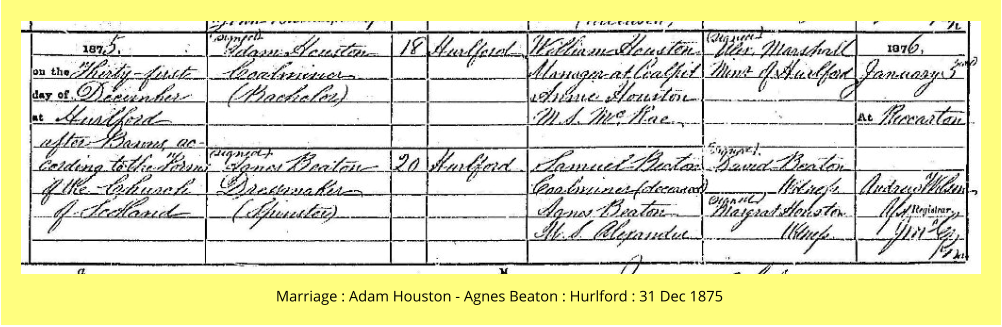 1875.
on the Thirty-first
day of December
at Hurlford
after Banns, ac-
cording to the Forms
of the Church
of Scotland
(Signed)
Adam Houston
Coalminer
(Bachelor)
(Signed)
Agnes Beaton
Dressmaker
(Spinster)
18
20
Hurlford
Hurlford
William Houston
Manager at Coalpit
Annie Houston
M.S. McRae
Samuel Beaton
Coalminer (deceased)
Agnes Beaton
M.S. Alexander
(Signed)
Alex. Marshall
Minr. of Hurlford
(Signed)
David Beaton
Witness
(Signed)
Margrat Houston
Witness
1876.
January 3rd
At Riccarton
Andrew Wilson
Registrar
Marriage : Adam Houston - Agnes Beaton : Hurlford : 31 Dec 1875